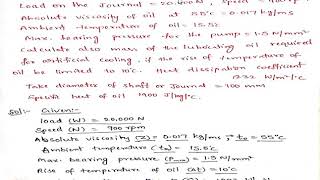 Load on the Journal = 20,000 N, Speed = 900 rpm
Absolute viscosity of oil at 55°c = 0.017 kg/ms
Ambient temperature of oil = 15.5°c
Max. bearing pressure for the pump = 1.5 N/mm²
Calculate also mass of the lubricating oil required
for artificial cooling, if the rise of temperature of
oil be limited to 10°c. Heat dissipation coefficient
1232 W/m²/°c
Take diameter of shaft or Journal = 100 mm
Specific heat of oil 1900 J/kg/°c.
Sol:- Given:-
load (W) = 20,000 N
Speed (N) = 900 rpm
Absolute viscosity (Z) = 0.017 kg/ms, t₀ = 55°c
Ambient temperature (ta) = 15.5°c
Max. bearing pressure = 1.5 N/mm²
Rise of temperature of oil (Δt) = 10°c